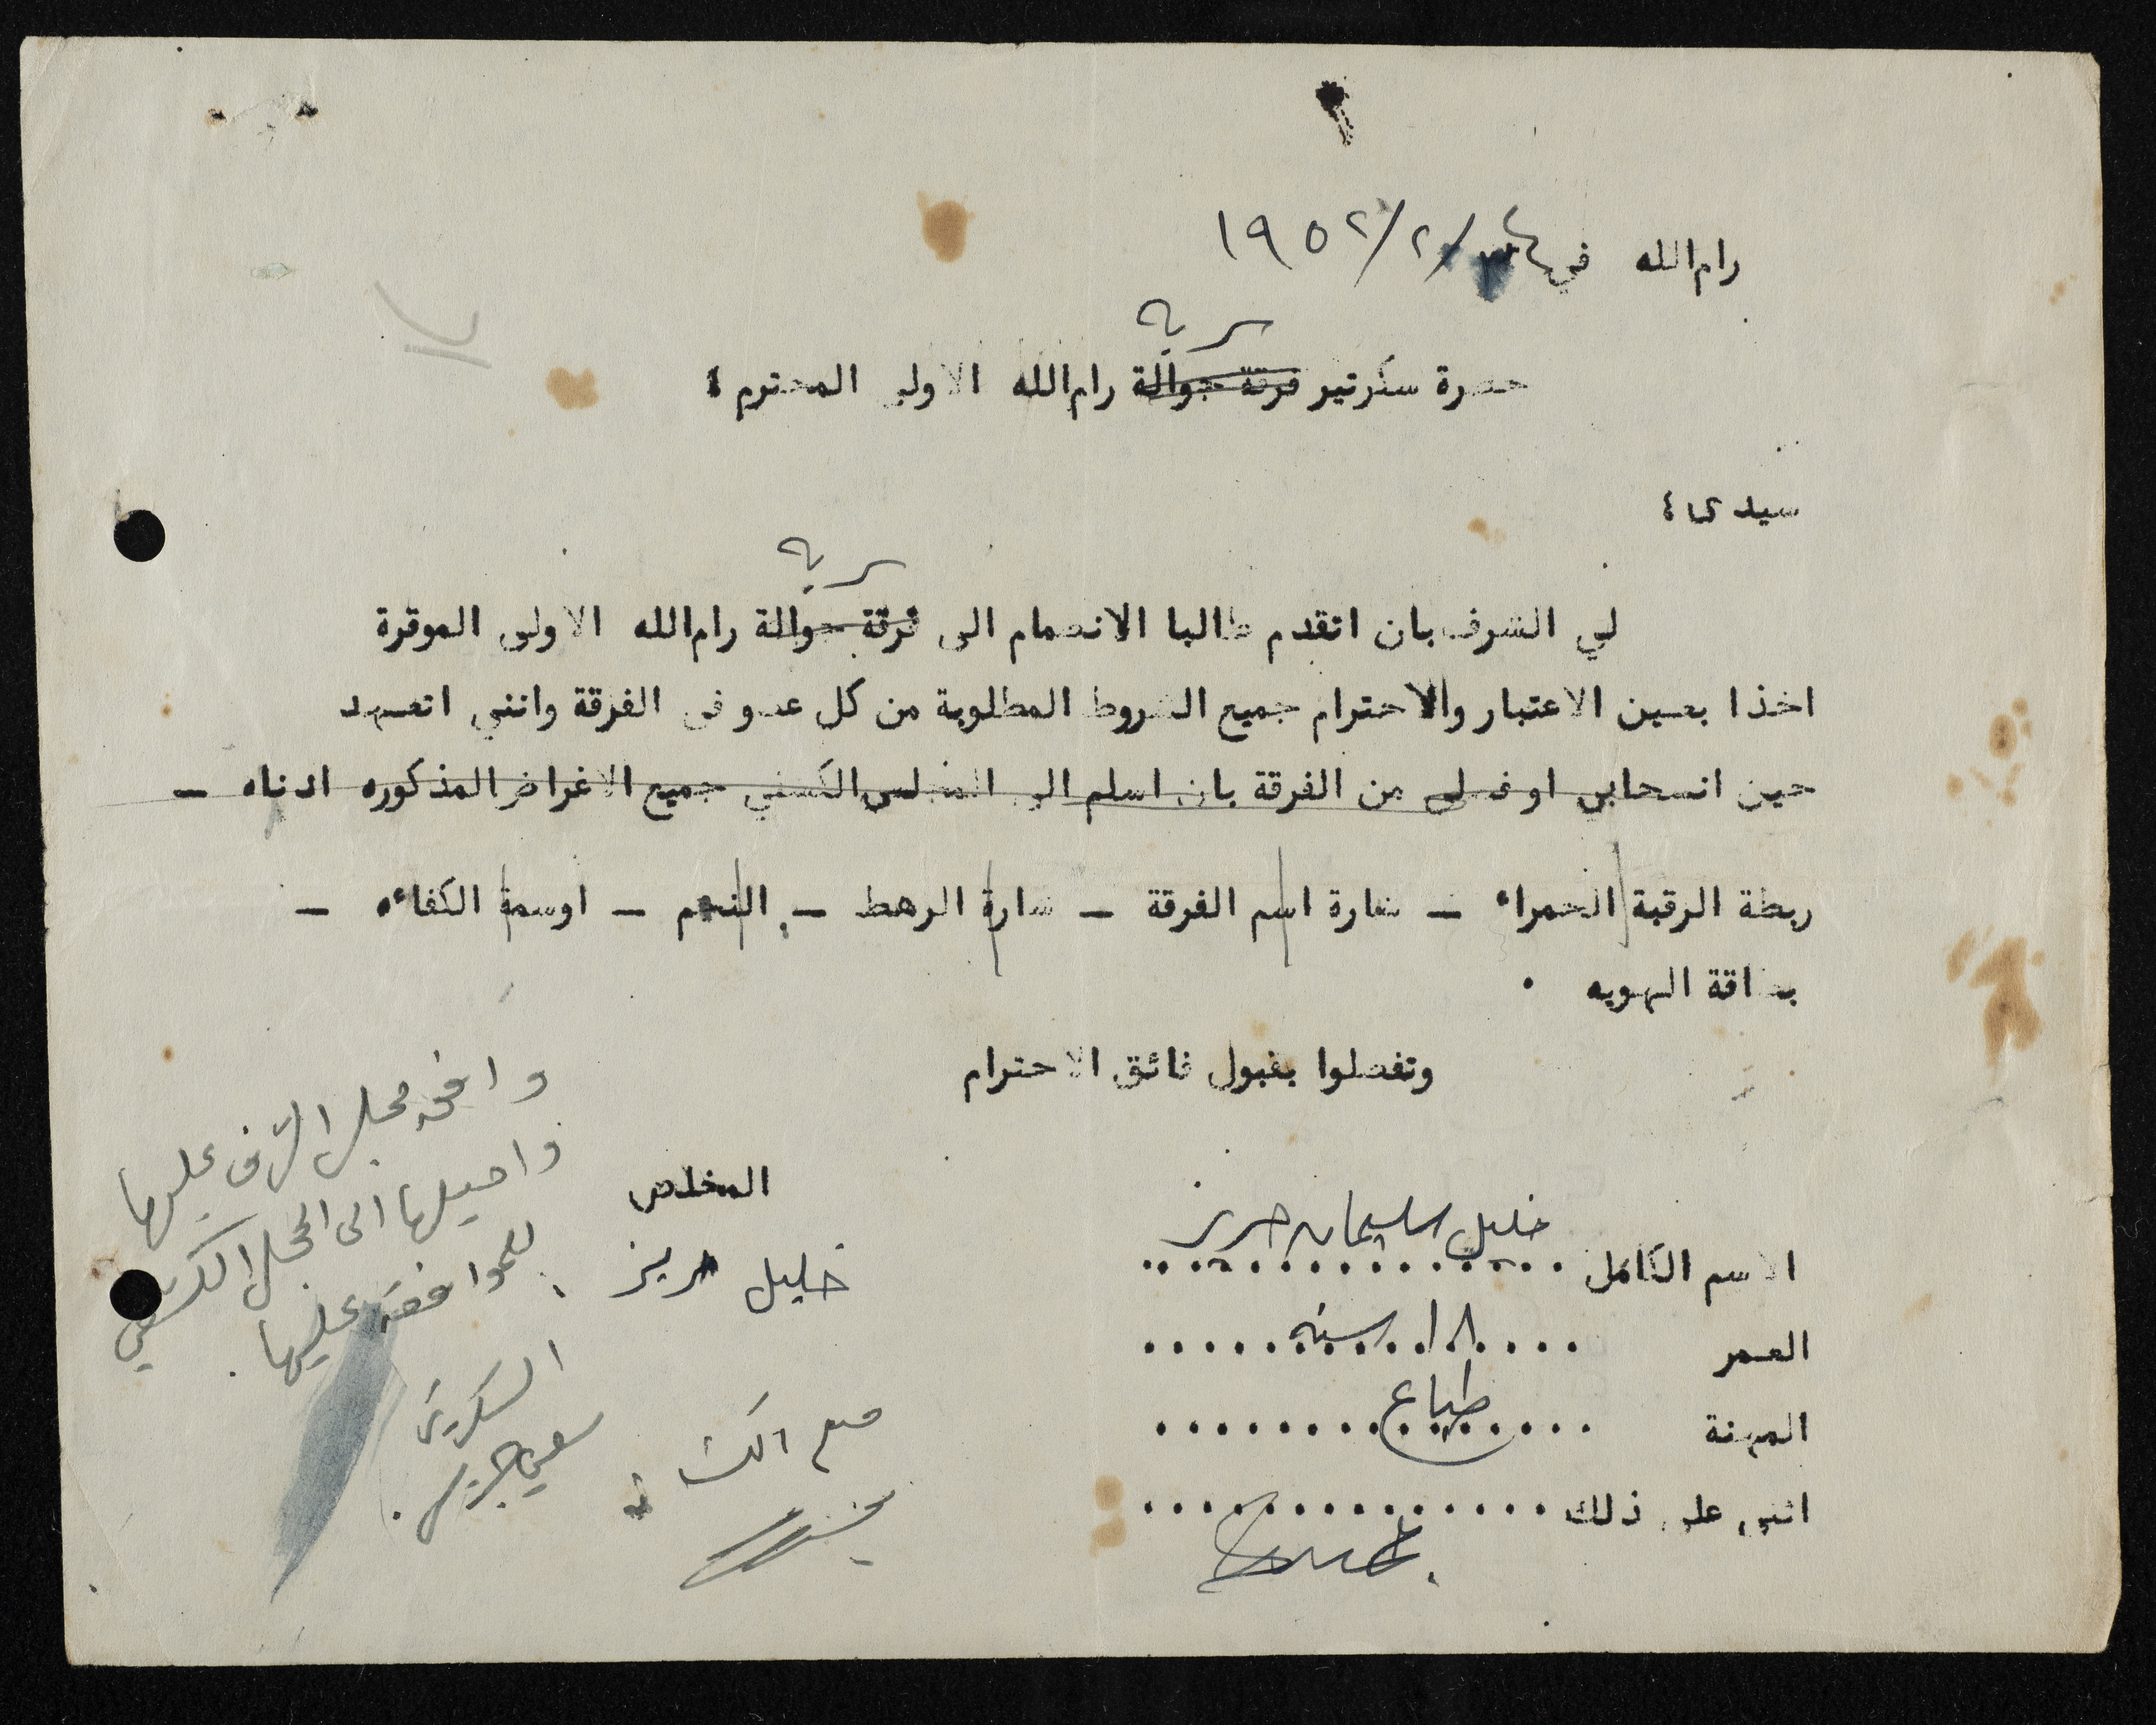 رام الله في ٢٤/٢/١٩٥٢
سرية
حضرة سكرتير فرقة جوالة رام الله الاولى المحترم ،
سيدي ،
سرية
لي الشرف بان اتقدم طالبا الانضمام الى فرقة جوالة رام الله الاولى الموقرة
اخذا بعين الاعتبار والاحترام جميع الشروط المطلوبة من كل عضو في الفرقة وانني اتعهد
حين انسحابي او فصلي من الفرقة بان اسلم الى المجلس الكشفي جميع الاغراض المذكوره ادناه ــ
ربطة الرقبة الحمراء ــ شارة اسم الفرقة ــ شارة الرهط ــ النجم ــ اوسمة الكفاءه ــ
بطاقة الهويه .
وتفضلوا بقبول فائق الاحترام
المخلص
خليل حريز
الاسم الكامل خليل سليمان حريز
العمر ١٨ سنه
المهنة طباع
اثني على ذلك
وافق مجلس الشرف عليها
واحيلها الى المجلس الكشفي
للموافقة عليها .
السكرتير